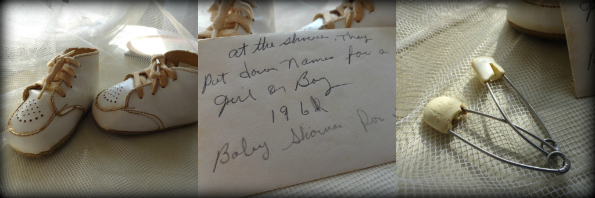 at the shower, they
Put down Names for a
girl or Boy
196
Baby Shower For